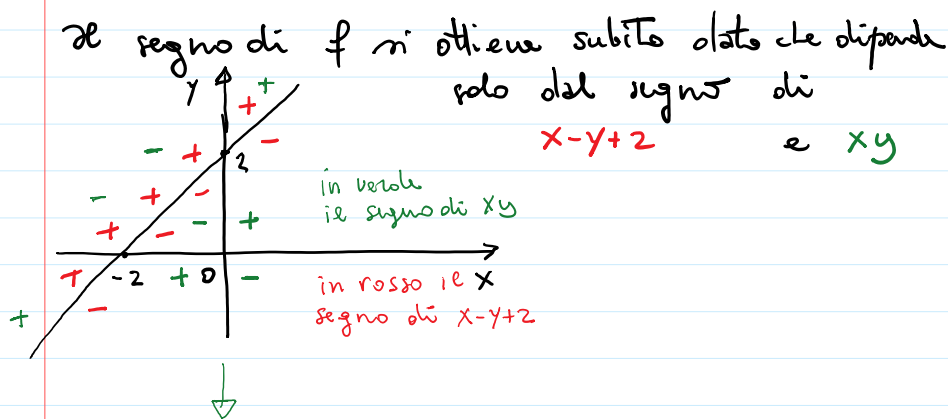 Il segno di f si ottiene subito dato che dipende
solo dal segno di
x-y+2 e xy
y
+
+
- + 2 -
- + - in verde
il segno di xy
+ - - +
+ -2 + 0 - in rosso il x
segno di x-y+2
-
+